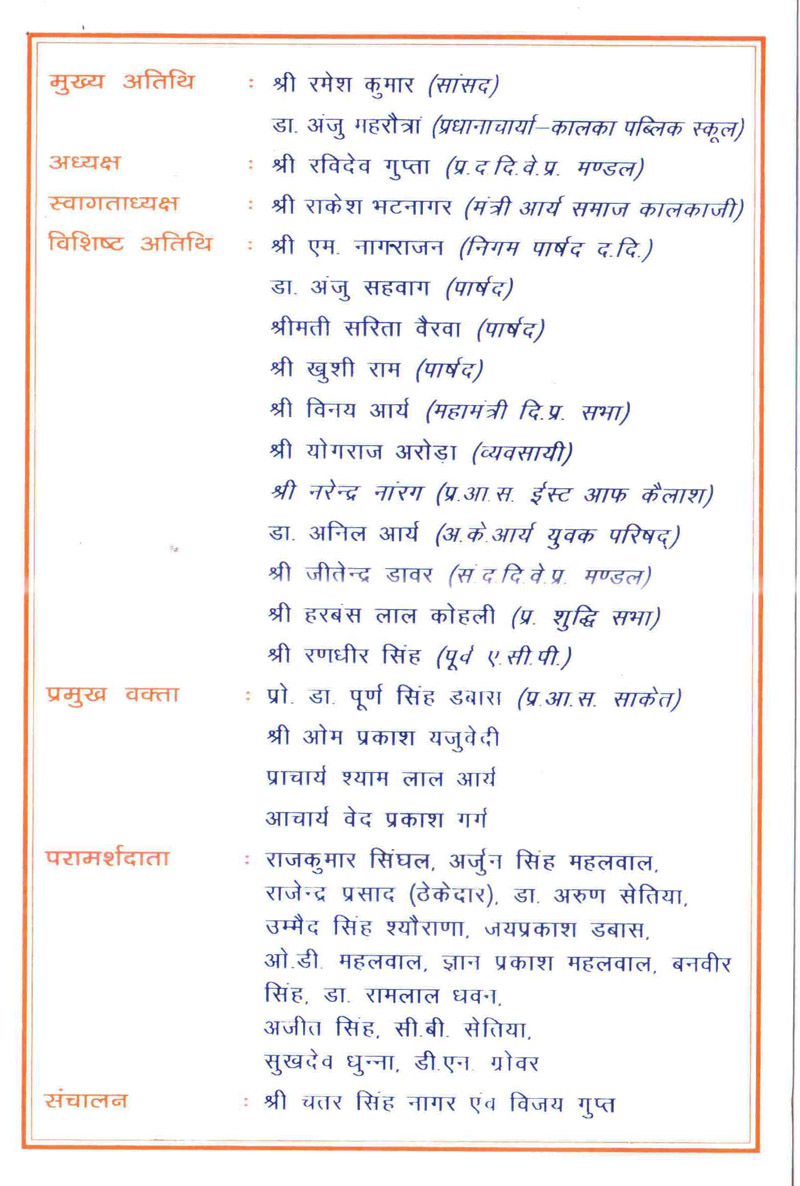 मुख्य अतिथि : श्री रमेश कुमार (सांसद)
डा. अंजु महरौत्रां (प्रधानाचार्या–कालका पब्लिक स्कूल)
अध्यक्ष : श्री रविदेव गुप्ता (प्र.द.दि.वे.प्र. मण्डल)
स्वागताध्यक्ष : श्री राकेश भटनागर (मंत्री आर्य समाज कालकाजी)
विशिष्ट अतिथि : श्री एम. नागराजन (निगम पार्षद द.दि.)
डा. अंजु सहवाग (पार्षद)
श्रीमती सरिता वैरवा (पार्षद)
श्री खुशी राम (पार्षद)
श्री विनय आर्य (महामंत्री दि.प्र. सभा)
श्री योगराज अरोड़ा (व्यवसायी)
श्री नरेन्द्र नांरग (प्र.आ.स. ईस्ट आफ कैलाश)
डा. अनिल आर्य (अ.के.आर्य युवक परिषद्)
श्री जीतेन्द्र डावर (सं.द.दि.वे.प्र. मण्डल)
श्री हरबंस लाल कोहली (प्र. शुद्धि सभा)
श्री रणधीर सिंह (पूर्व ए.सी.पी.)
प्रमुख वक्ता : प्रो. डा. पूर्ण सिंह डबास (प्र.आ.स. साकेत)
श्री ओम प्रकाश यजुवेदी
प्राचार्य श्याम लाल आर्य
आचार्य वेद प्रकाश गर्ग
परामर्शदाता : राजकुमार सिंघल, अर्जुन सिंह महलवाल,
राजेन्द्र प्रसाद (ठेकेदार), डा. अरुण सेतिया,
उम्मैद सिंह श्यौराणा, जयप्रकाश डबास,
ओ.डी. महलवाल, ज्ञान प्रकाश महलवाल, बनवीर
सिंह, डा. रामलाल धवन,
अजीत सिंह, सी.बी. सेतिया,
सुखदेव धुन्ना, डी.एन. ग्रोवर
संचालन : श्री चतर सिंह नागर एंव विजय गुप्त